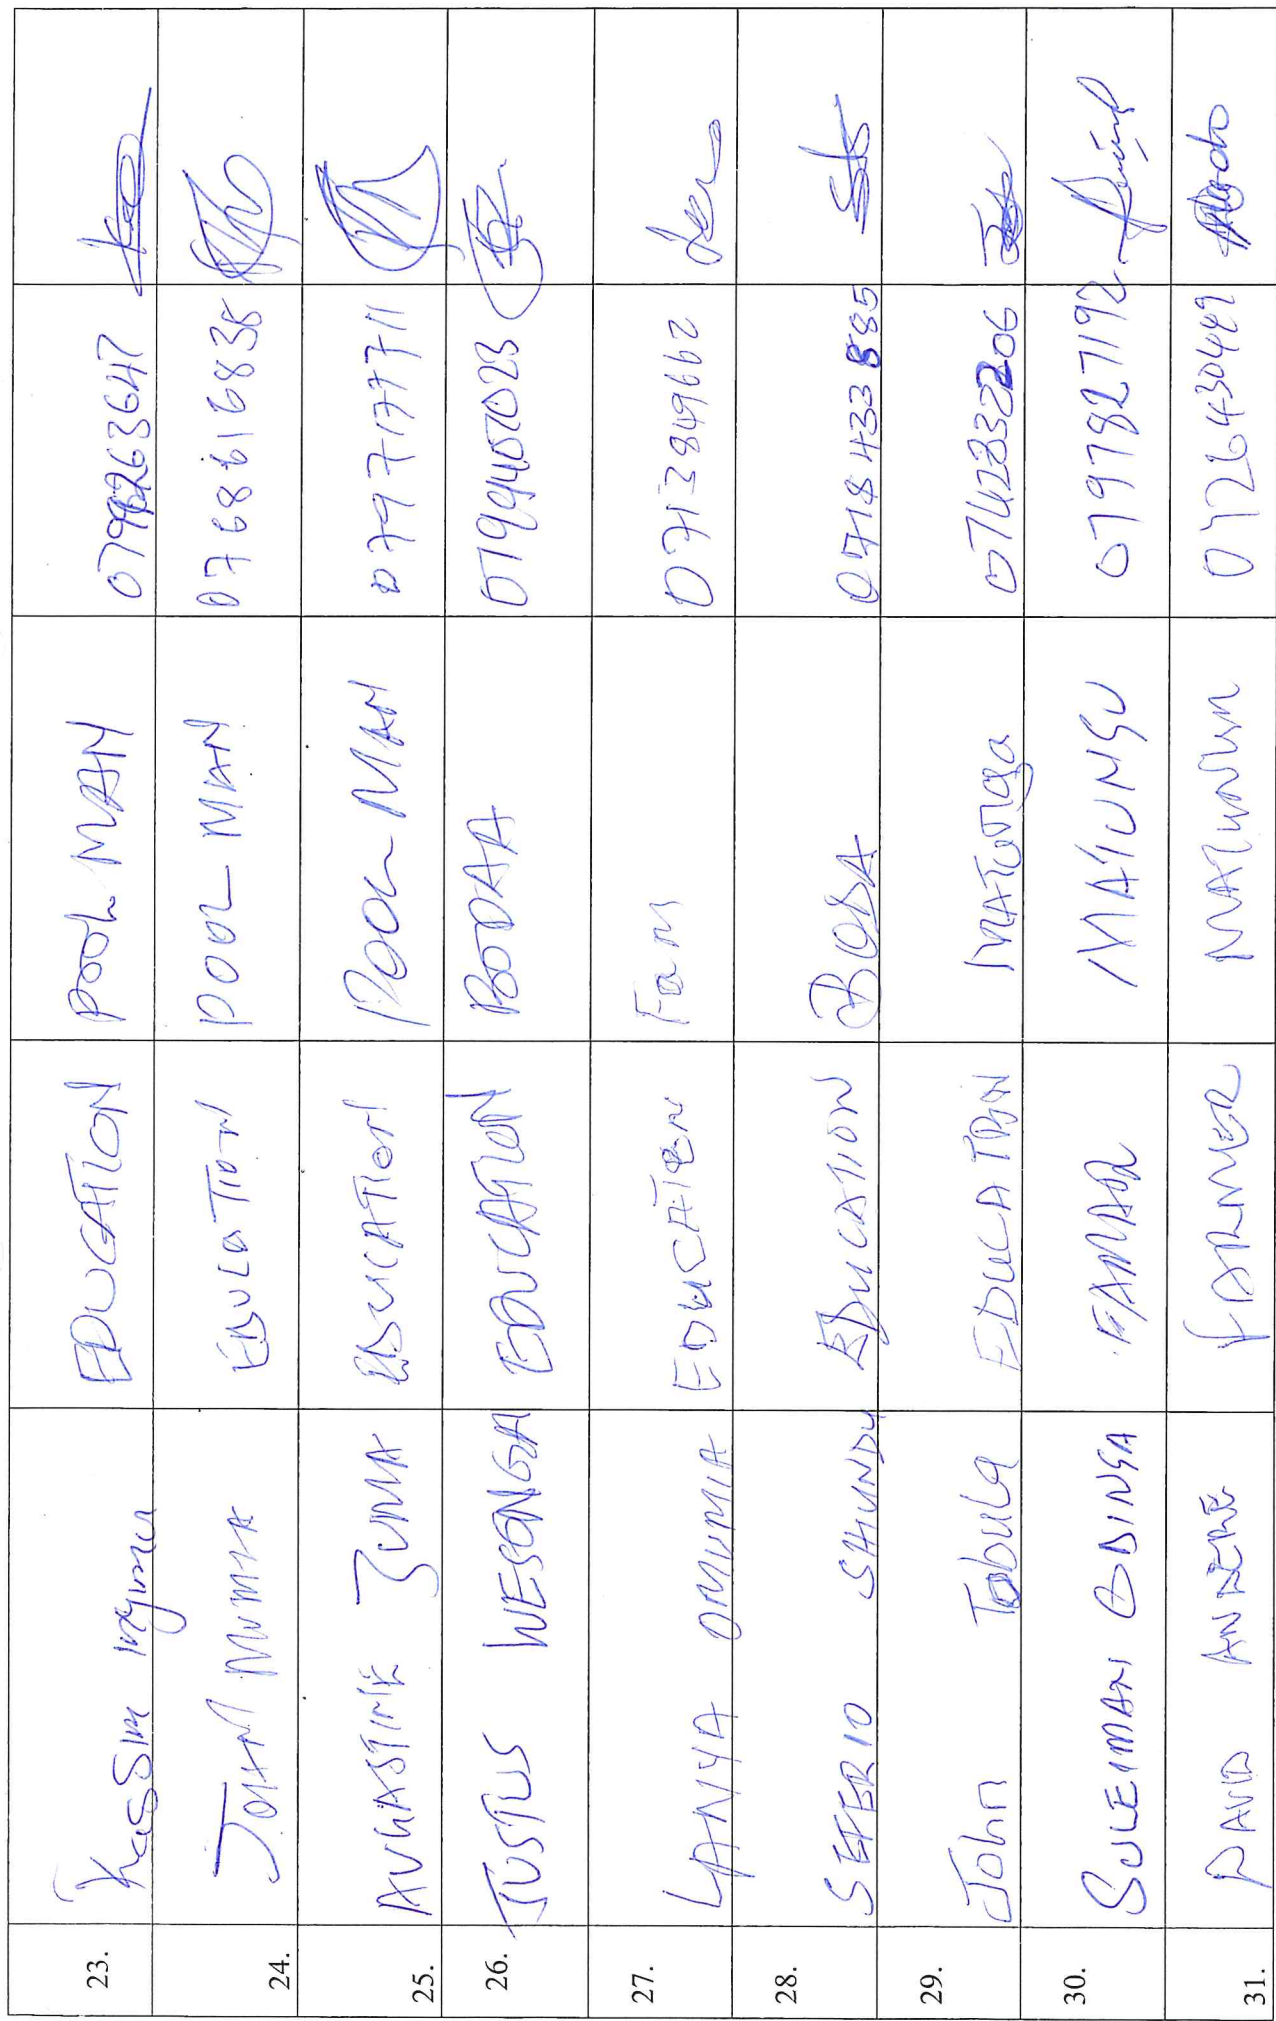 23. Kassim EDUCATION POOL MAN
24. JOHN MUMIA EDUCATION POOL MAN 0768616838
25. AUGASTINE JUMA EDUCATION POOL MAN 0797177711
26. JUSTUS WESONGA EDUCATION BODAA
27. LANYA OMUMIA EDUCATION Farm 0713849662
28. SEFERIO SHUNDU EDUCATION BODA 0718433885
29. John Tabula EDUCATION MATUNGA
30. SULEIMAN ODINGA FAMAR MATUNGU 0797827192
31. DAVID ANDERE FARMER 0726430449